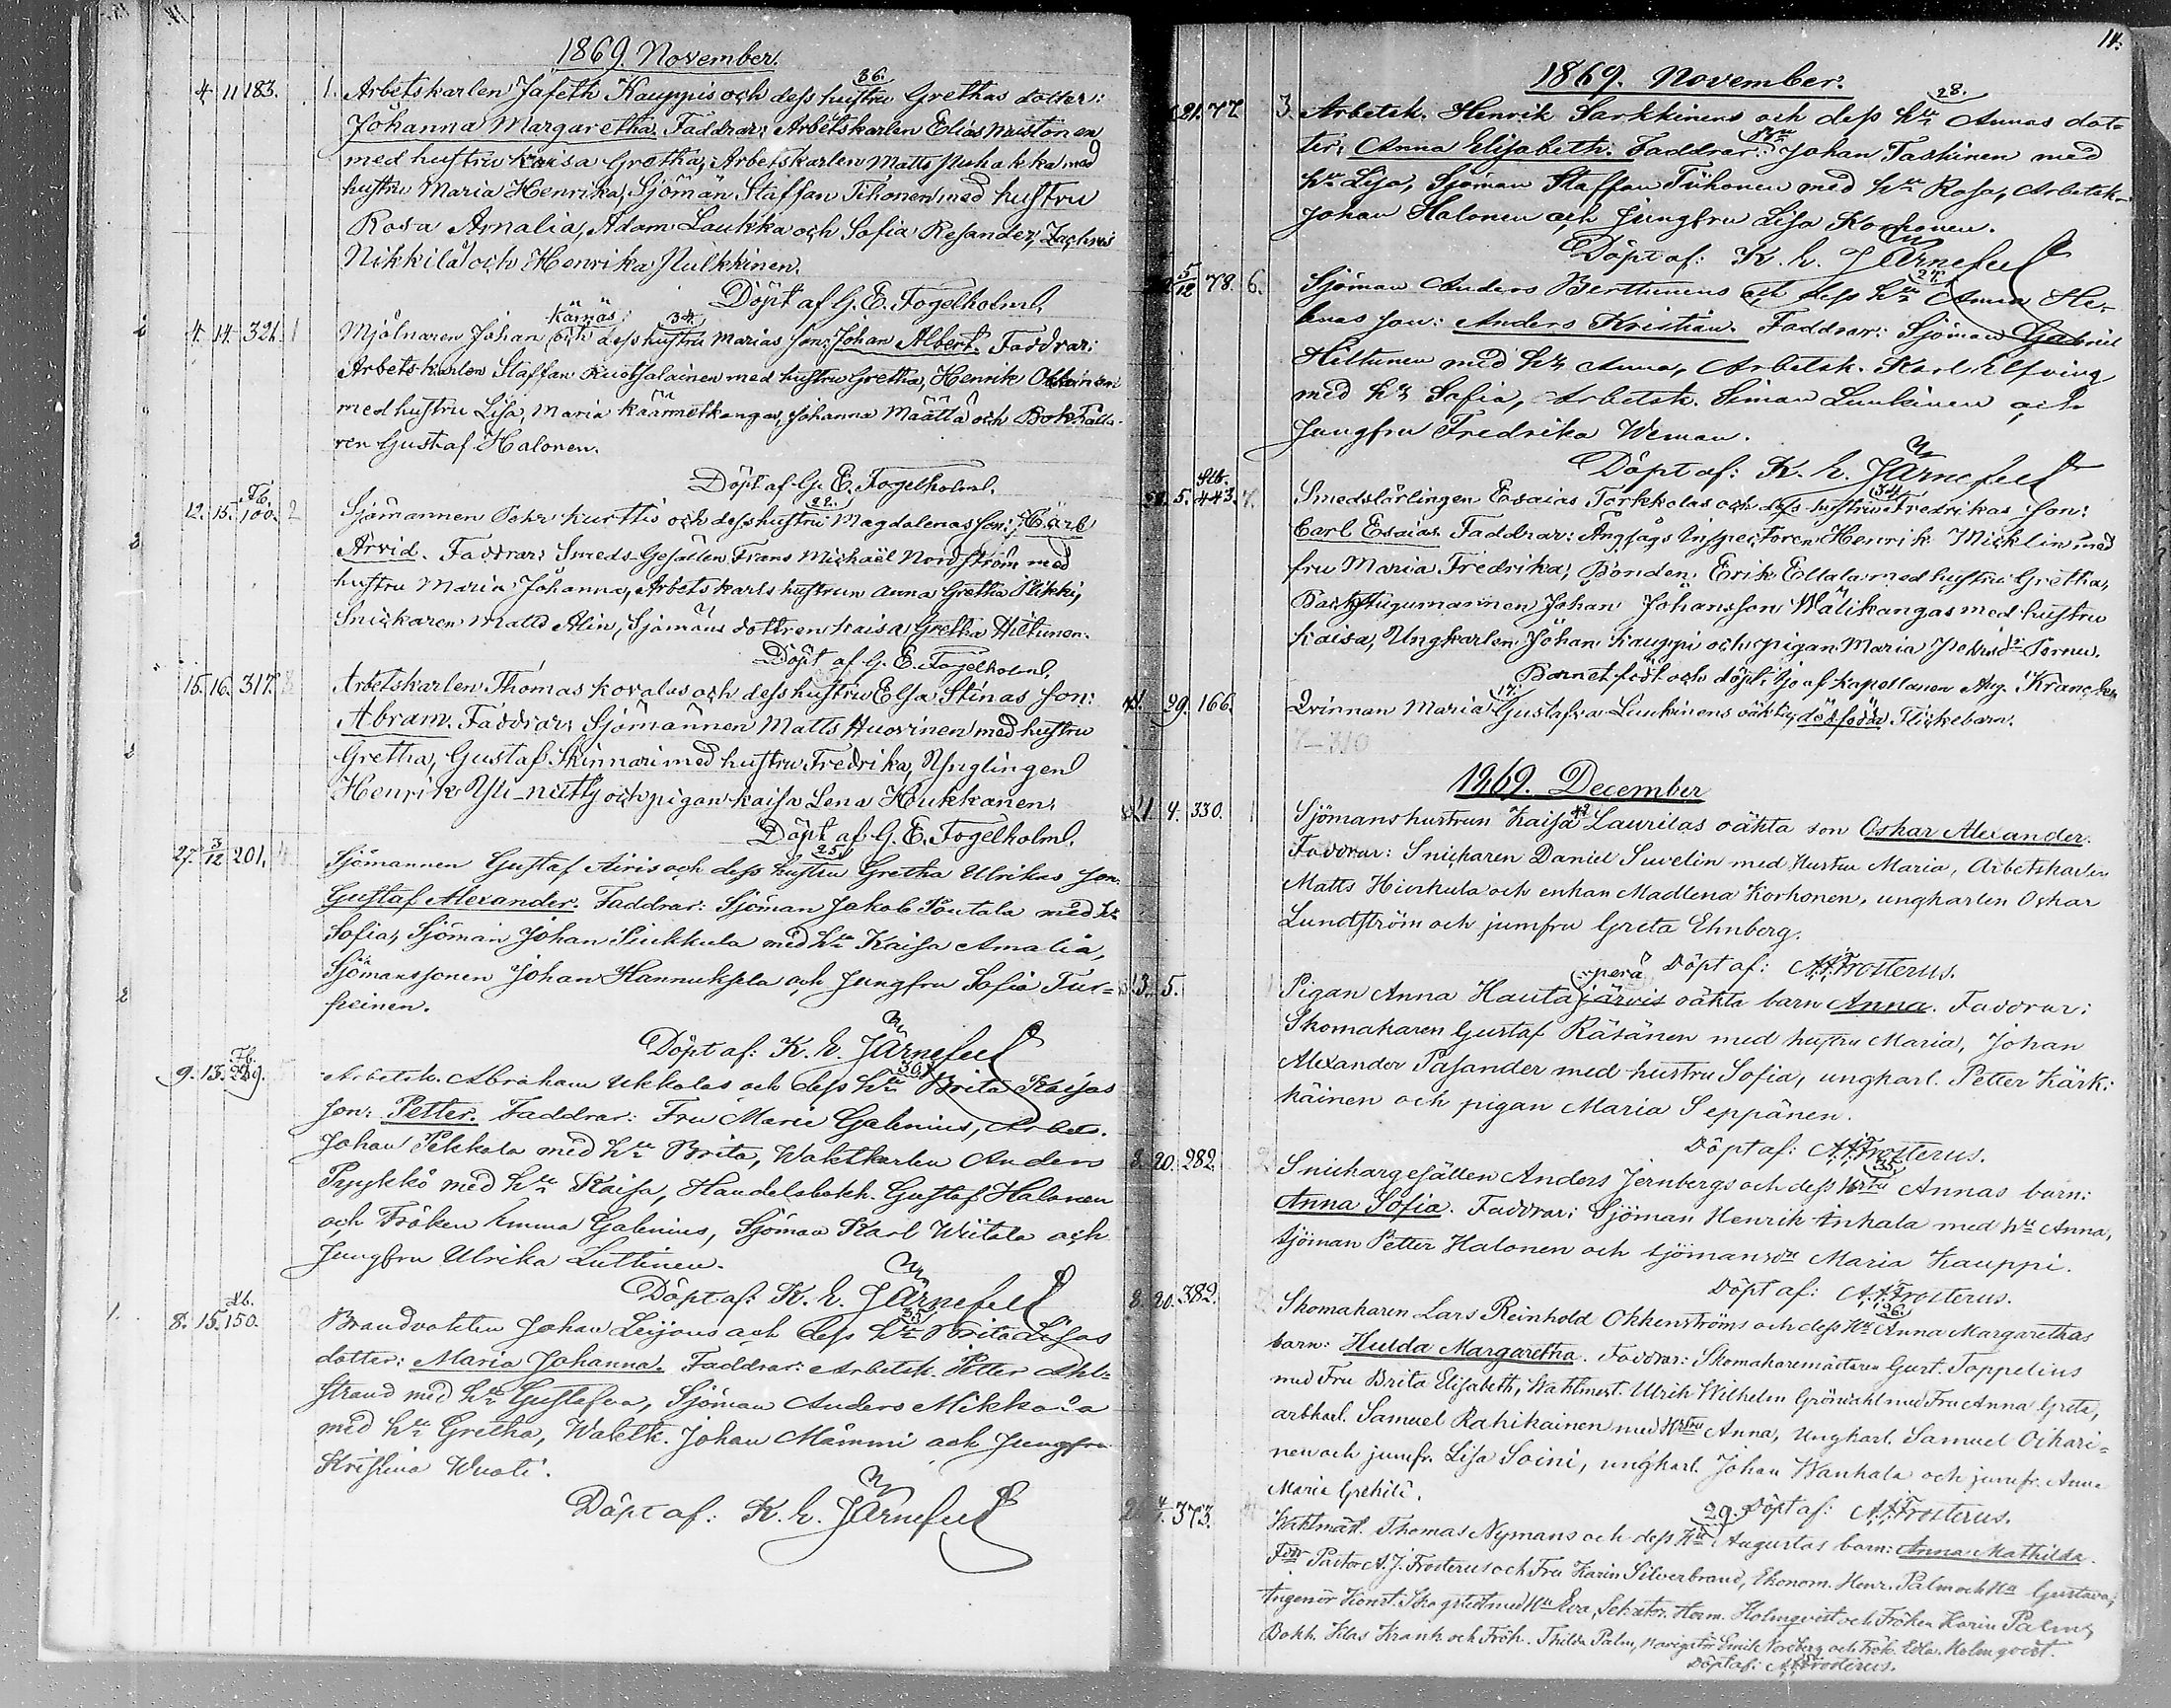 1869. November.
4. 11. 183. 1. Arbetskarlen Jafeth Kauppis och dess hustru 36. Grethas dotter:
Johanna Margaretha. Faddrar: Arbetskarlen Elias Mustonen
med hustru Kaisa Gretha, Arbetskarlen Matts Puhakka med
hustru Maria Henrika, Sjöman Staffan Tihonen med hustru
Rosa Amalia, Adam Laukka och Sofia Resander, Zachris
Nikkilä och Henrika Pulkkinen.
Döpt af G. E. Fogelholm.
4. 14. 321. 1 Mjölnaren Johan Kärnäs och dess hustru 34. Marias son: Johan Albert. Faddrar:
Arbetskarlen Staffan Kuotsalainen med hustru Gretha, Henrik
med hustru Lisa, Maria Käärmelkangas, Johanna Määttä och Bokhålla-
ren Gustaf Halonen.
Döpt af G. E. Fogelholm.
12. 15. Tb. 100. 2 Sjömannen Petr Kurttis och dess hustru 22. Magdalenas son: Karl
Arvid. Faddrar: Smeds-Gesällen Frans Michaël Nordström med
hustru Maria Johanna, Arbetskarls hustrun Anna Gretha Plikki,
Snickaren Matts Alin, Sjömans dottren Kaisa Gretha Hiltunen.
Döpt af G. E. Fogelholm.
15. 16. 317. Arbetskarlen Thomas Kovalas och dess hustru Elsa Stinas son:
Abram. Faddrar: Sjömannen Matts Huovinen med hustru
Gretha, Gustaf Skinnari med hustru Fredrika, Ynglingen
Henrik Yli-nutty och pigan Kaisa Lena Houkkanen.
Döpt af G. E. Fogelholm.
27. 3/12 201. Sjömannen Gustaf Airis och dess hustru 25. Gretha Ulrikas son:
Gustaf Alexander. Faddrar: Sjöman Jakob Poutala med hu
Sofia, Sjöman Johan Piukkula med hu Kaisa Amalia,
Sjömanssonen Johan Hannuksela och Jungfru Sofia Tur-
peinen.
Döpt af: K. E. Järnefelt
9. 13. Tb. 229. Arbetsk. Abraham Ukkolas och dess hu 30. Brita Kaisas
son: Petter. Faddrar: Fru Marie Galenius, Arbets.
Johan Pekkala med hu Brita, Waktkarlen Anders
Pyykkö med hu Kaisa, Handelsbokh. Gustaf Halonen
och Fröken Emma Galenius, Sjöman Karl Wiitala och
Jungfru Ulrika Luttinen.
Döpt af: K. E. Järnefelt
8. 15. Ab. 150. Brandvakten Johan Leijons och dess hu 35. Brita Lisas
dotter: Maria Johanna. Faddrar: Arbetsk. Petter Ahl-
strand med hu Gustafva, Sjöman Anders Mikkola
med hu Gretha, Waktk. Johan Mämmi och Jungfru
Kristina Wuoti.
Döpt af: K. E. Järnefelt
14.
1869. November.
21. 77. 3. Arbetsk. Henrik Sarkkinens och dess hu 28. Annas dot-
ter: Anna Elisabeth. Faddrar: Johan Taskinen med
hu Lisa, Sjöman Staffan Tiihonen med hu Rosa, Arbetsk.
Johan Halonen och Jungfru Lisa Korhonen.
Döpt af: K. E. Järnefelt
5/12 78. 6. Sjöman Anders Berttunens och dess hu 27. Anna He-
lenas son: Anders Kristian. Faddrar: Sjöman Gabriel
Hiltunen med hu Anna, Arbetsk. Karl Elfving
med hu Sofia, Arbetsk. Simon Luukinen och
Jungfru Fredrika Weman.
Döpt af: K. E. Järnefelt
5. Ab. 443. 7. Smedslärlingen Esaias Torkkolas och dess hustru 34. Fredrikas son:
Carl Esaias. Faddrar: Ångsågs Inspectoren Henrik Micklin med
fru Maria Fredrika, Bonden Erik Ellala med hustru Gretha,
Backstugumannen Johan Johansson Wälikangas med hustru
Kaisa, Ungkarlen Johan Kauppi och pigan Maria Tornu.
Barnet födt och döpt i Ijo af Kapellanen Aug.
29. 166. Qvinnan Maria 17. Gustafva Luukinens oäkta dödfödda Flickebarn.
1869. December
21. 4. 330. 1 Sjömanshustrun Kaisa 42 Laurilas oäkta son Oskar Alexander.
Faddrar: Snickaren Daniel Suvelin med Hustru Maria, Arbetskarlen
Matts Hiivkula och enkan Madlena Korhonen, ungkarlen Oskar
Lundström och jumfru Greta Ehnberg.
Döpt af: A.J. Frosterus.
13. 5. 1 Pigan Anna Hautajärvis perä oäkta barn Anna. Faddrar:
Skomakaren Gustaf Räsänen med hustru Maria, Johan
Alexander Pasander med hustru Sofia, ungkarl. Petter Kärk-
käinen och pigan Maria Seppänen.
Döpt af: A.J. Frosterus.
8. 20. 282. 2 Snickargesällen Anders Jernbergs och dess Hstru 35. Annas barn:
Anna Sofia. Faddrar: Sjöman Henrik Inkala med hu Anna,
sjöman Petter Halonen och sjömansdr Maria Kauppi.
Döpt af: A.J. Frosterus.
8. 20. 382. Skomakaren Lars Reinhold Okkenströms och dess Hu 26. Anna Margarethas
barn: Hulda Margaretha. Faddrar: Skomakaremästaren Gust. Toppelius
med Fru Brita Elisabeth, Waktmest. Ulrik Wilhelm Gröndahl med Fru Anna Greta,
arbkarl. Samuel Rahikainen med Hstru Anna, Ungkarl. Samuel Oikari-
nen och jumfr. Lisa Soini, ungkarl. Johan Wanhala och jumfr. Anna
Maria Grekilä.
Döpt af: A.J. Frosterus.
4/1. 373. Waktmäst. Thomas Nymans och dess Hu 29. Augustas barn: Anna Mathilda.
Fdr Pastor A. J. Frosterus och Fru Karin Silverbrand, Ekonom. Henr. Palm och Hu Gustava,
Ingenör Konst. Skogstedt med Hu Eva, Sekreter. Herm. Holmqvist och Fröken Karin Palm,
Bokh. Klas Krank och Frök. Thilda Palm, Navigatör Emik Nordberg och Frök. Edla Holmqvist.
Döpt af: A.J. Frosterus.